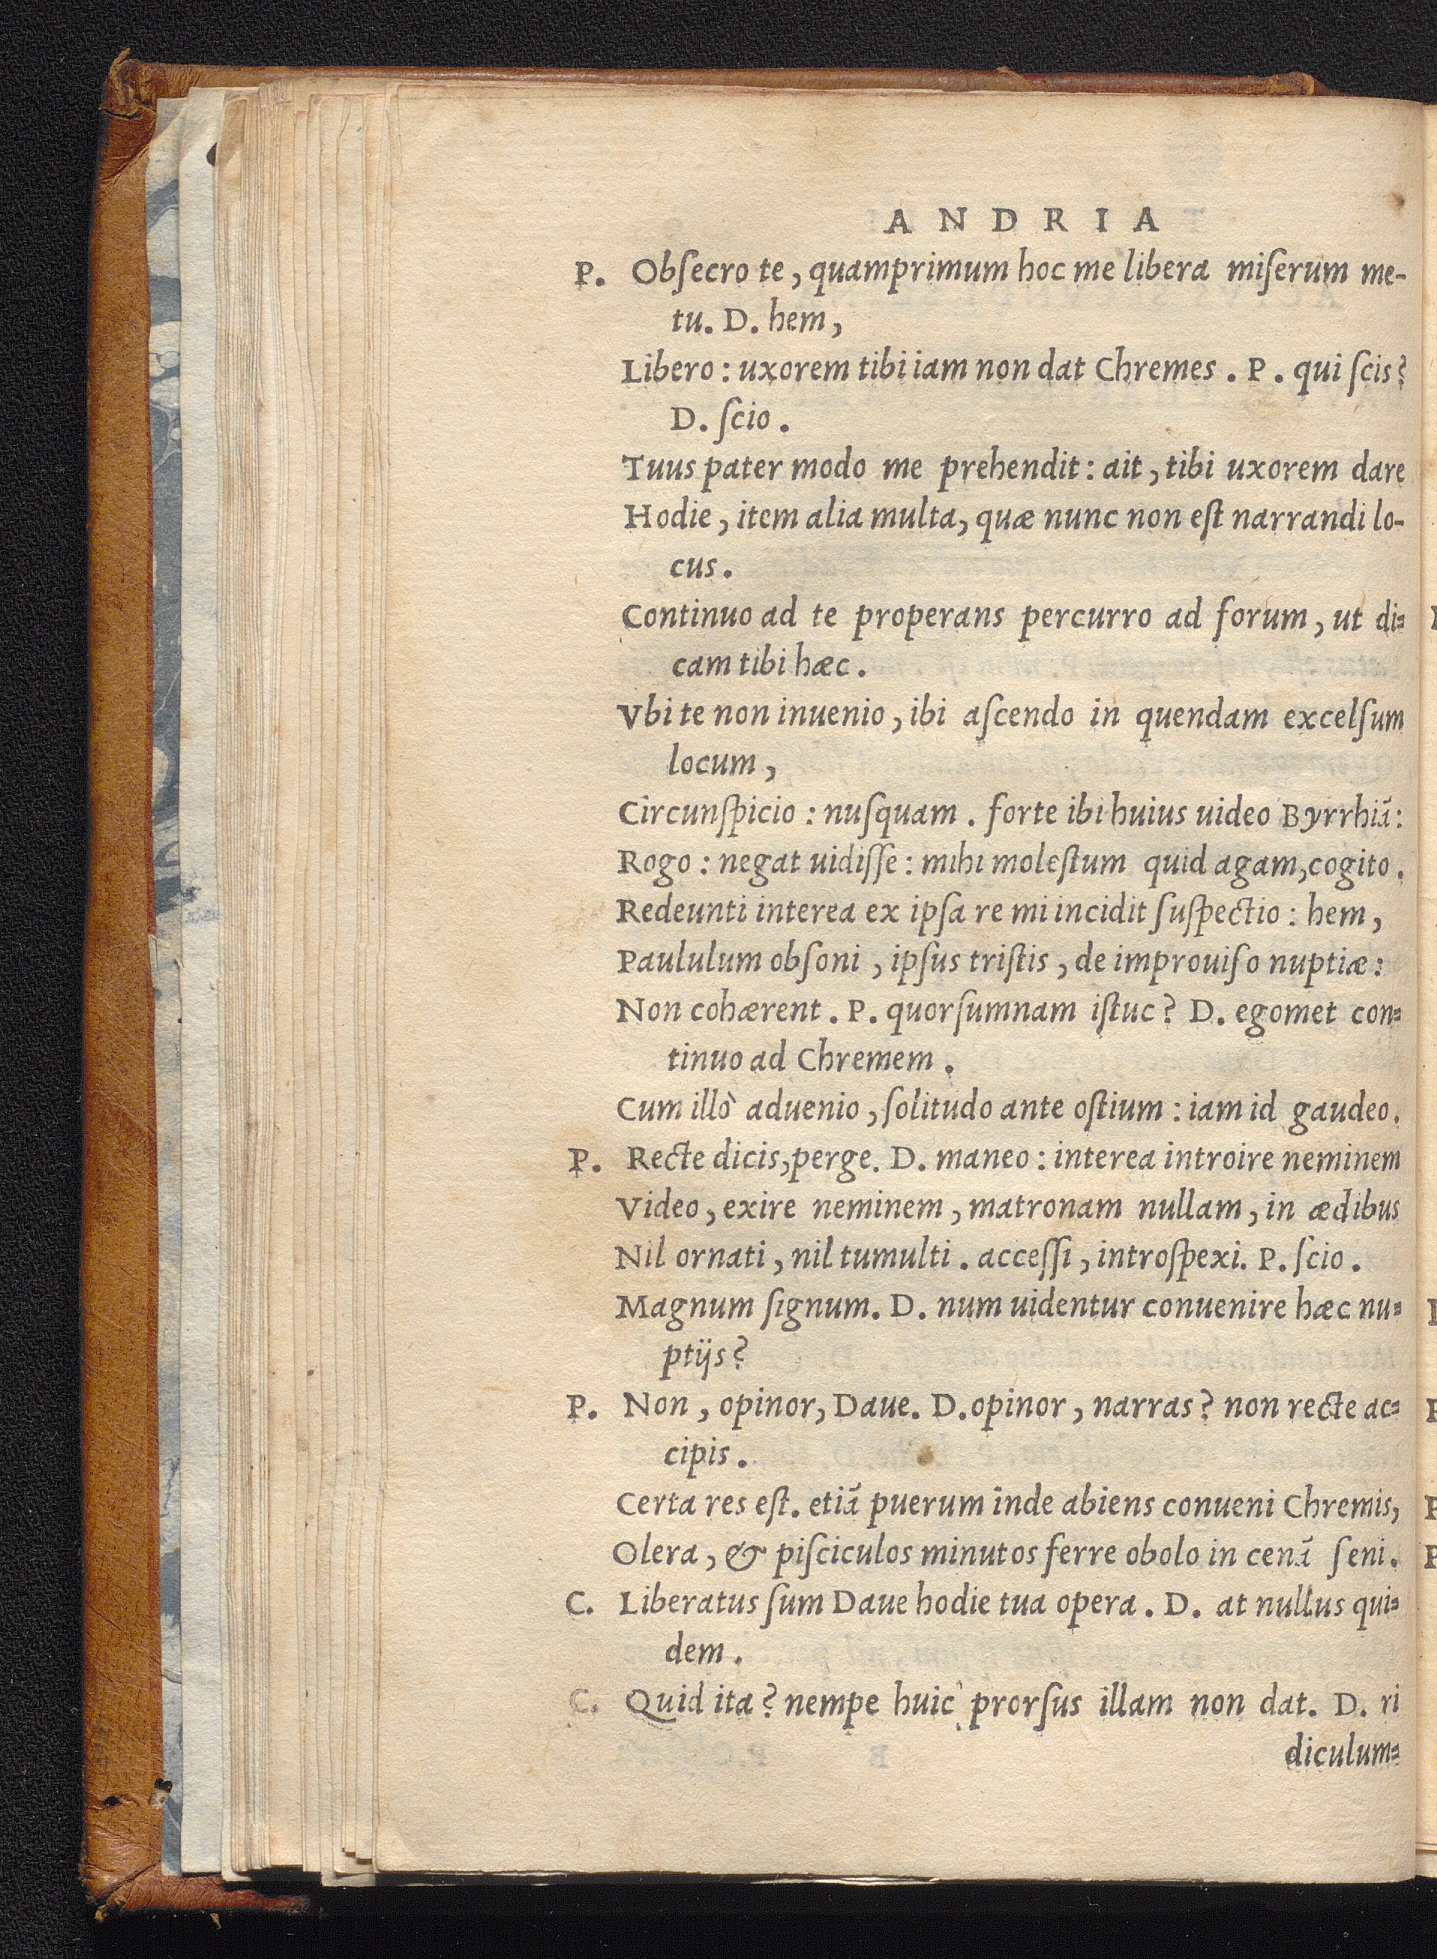 ANDRIA
P. Obſecro te, quamprimum hoc me libera miſerum me-
tu. D. hem,
Libero: uxorem tibi iam non dat Chremes. P. qui ſcis?
D. ſcio.
Tuus pater modo me prehendit: ait, tibi uxorem dare
Hodie, item alia multa, quæ nunc non eſt narrandi lo-
cus.
Continuo ad te properans percurro ad forum, ut di-
cam tibi hæc.
Vbi te non inuenio, ibi aſcendo in quendam excelſum
locum,
Circunſpicio: nuſquam. forte ibi huius uideo Byrrhiā:
Rogo: negat uidiſſe: mihi moleſtum quid agam, cogito.
Redeunti interea ex ipſa re mi incidit ſuſpectio: hem,
Paululum obſoni, ipſus triſtis, de improuiſo nuptiæ:
Non cohærent. P. quorſumnam iſtuc? D. egomet con-
tinuo ad Chremem.
Cum illò aduenio, ſolitudo ante oſtium: iam id gaudeo.
P. Recte dicis, perge. D. maneo: interea introire neminem
Video, exire neminem, matronam nullam, in ædibus
Nil ornati, nil tumulti. acceſſi, introſpexi. P. ſcio.
Magnum ſignum. D. num uidentur conuenire hæc nu-
ptijs?
P. Non, opinor, Daue. D. opinor, narras? non recte ac-
cipis.
Certa res eſt. etiā puerum inde abiens conueni Chremis,
Olera, & piſciculos minutos ferre obolo in cenā ſeni.
C. Liberatus ſum Daue hodie tua opera. D. at nullus qui-
dem.
C. Quid ita? nempe huic prorſus illam non dat. D. ri
diculum-